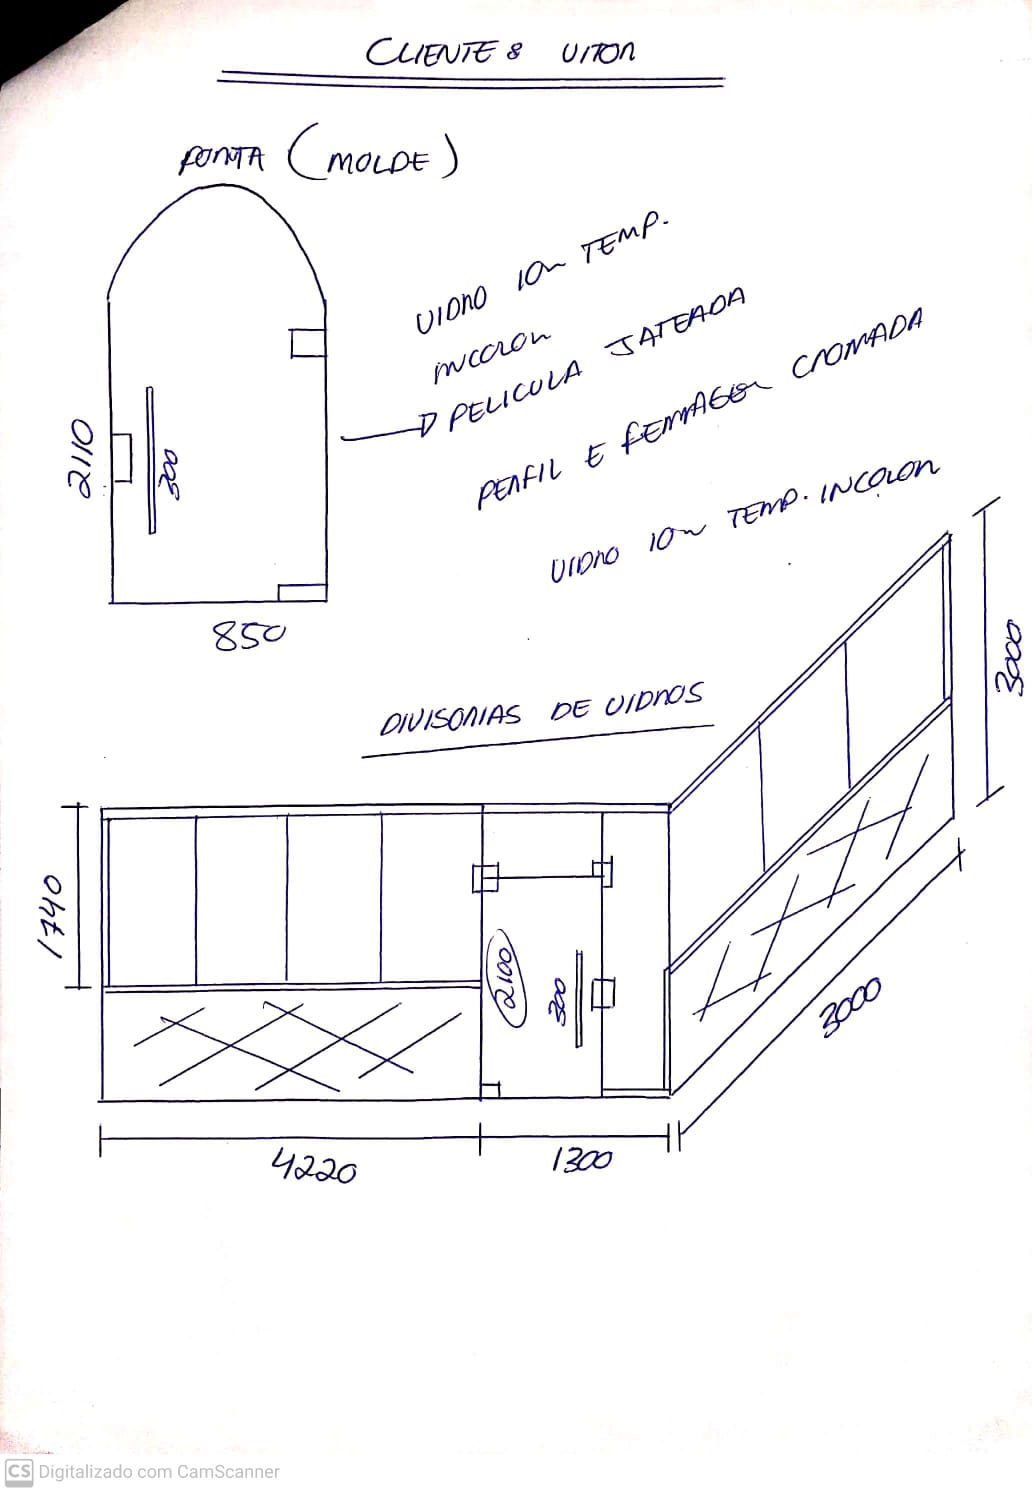 CLIENTE: VITOR
PORTA (MOLDE)
VIDRO 10m TEMP.
INCOLOR
PELICULA JATEADA
PERFIL E FERRAGEM CROMADA
2110
300
850
VIDRO 10m TEMP. INCOLOR
3000
DIVISORIAS DE VIDROS
1740
2100
300
3000
4220
1300
CS Digitalizado com CamScanner